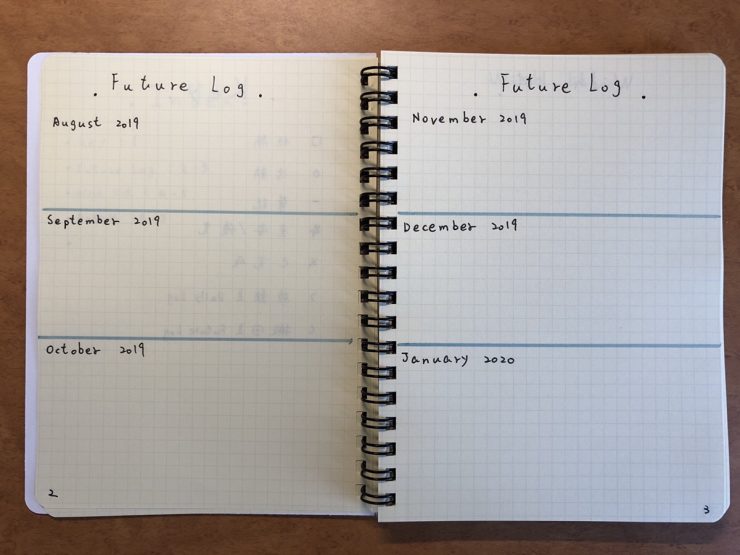 . Future Log .
August 2019
September 2019
October 2019
2
. Future Log .
November 2019
December 2019
January 2020
3